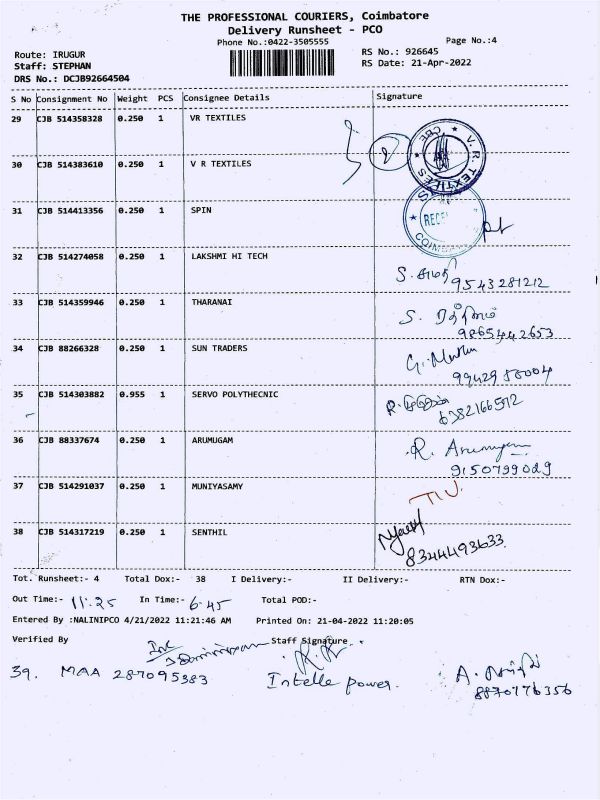 THE PROFESSIONAL COURIERS, Coimbatore
Delivery Runsheet - PCO
Phone No.:0422-3505555
Page No.:4
Route: IRUGUR
RS No.: 926645
Staff: STEPHAN
RS Date: 21-Apr-2022
DRS No.: DCJB92664504
S No Consignment No Weight PCS Consignee Details Signature
29 CJB 514358328 0.250 1 VR TEXTILES
V. R. TEXTILES CBE
30 CJB 514383610 0.250 1 V R TEXTILES
31 CJB 514413356 0.250 1 SPIN
32 CJB 514274058 0.250 1 LAKSHMI HI TECH
9543281212
33 CJB 514359946 0.250 1 THARANAI
S.
9865442653
34 CJB 88266328 0.250 1 SUN TRADERS
35 CJB 514303882 0.955 1 SERVO POLYTHECNIC
R.
6382166512
36 CJB 88337674 0.250 1 ARUMUGAM
R. Arumugam
9150799029
37 CJB 514291037 0.250 1 MUNIYASAMY
38 CJB 514317219 0.250 1 SENTHIL
8344493633
Tot. Runsheet:- 4 Total Dox:- 38 I Delivery:- II Delivery:- RTN Dox:-
Out Time:- 11:25 In Time:- 6:45 Total POD:-
Entered By :NALINIPCO 4/21/2022 11:21:46 AM Printed On: 21-04-2022 11:20:05
Verified By Staff Signature
39. MAA 287095383 Intelle power. A.
8870776356